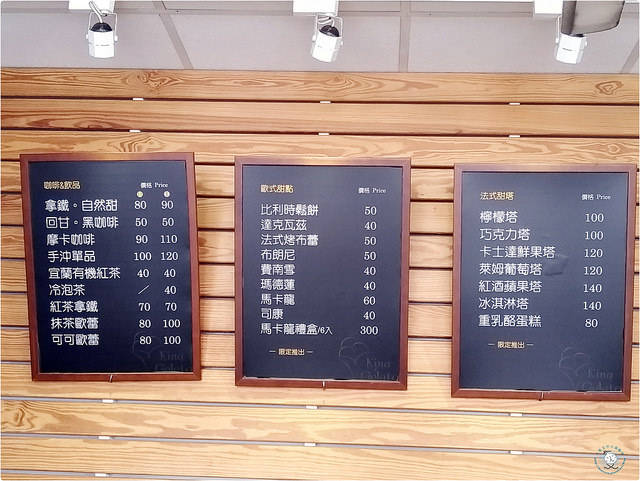 咖啡&飲品 價格 Price
拿鐵。自然甜 80 90
回甘。黑咖啡 50 50
摩卡咖啡 90 110
手沖單品 100 120
宜蘭有機紅茶 40 40
冷泡茶 ／ 40
紅茶拿鐵 70 70
抹茶歐蕾 80 100
可可歐蕾 80 100
King
Gelato
歐式甜點 價格 Price
比利時鬆餅 50
達克瓦茲 40
法式烤布蕾 50
布朗尼 50
費南雪 40
瑪德蓮 40
馬卡龍 60
司康 40
馬卡龍禮盒/6入 300
— 限定推出 —
King
Gelato
法式甜塔 價格 Price
檸檬塔 100
巧克力塔 100
卡士達鮮果塔 120
萊姆葡萄塔 120
紅酒蘋果塔 140
冰淇淋塔 140
重乳酪蛋糕 80
— 限定推出 —
King
Gelato